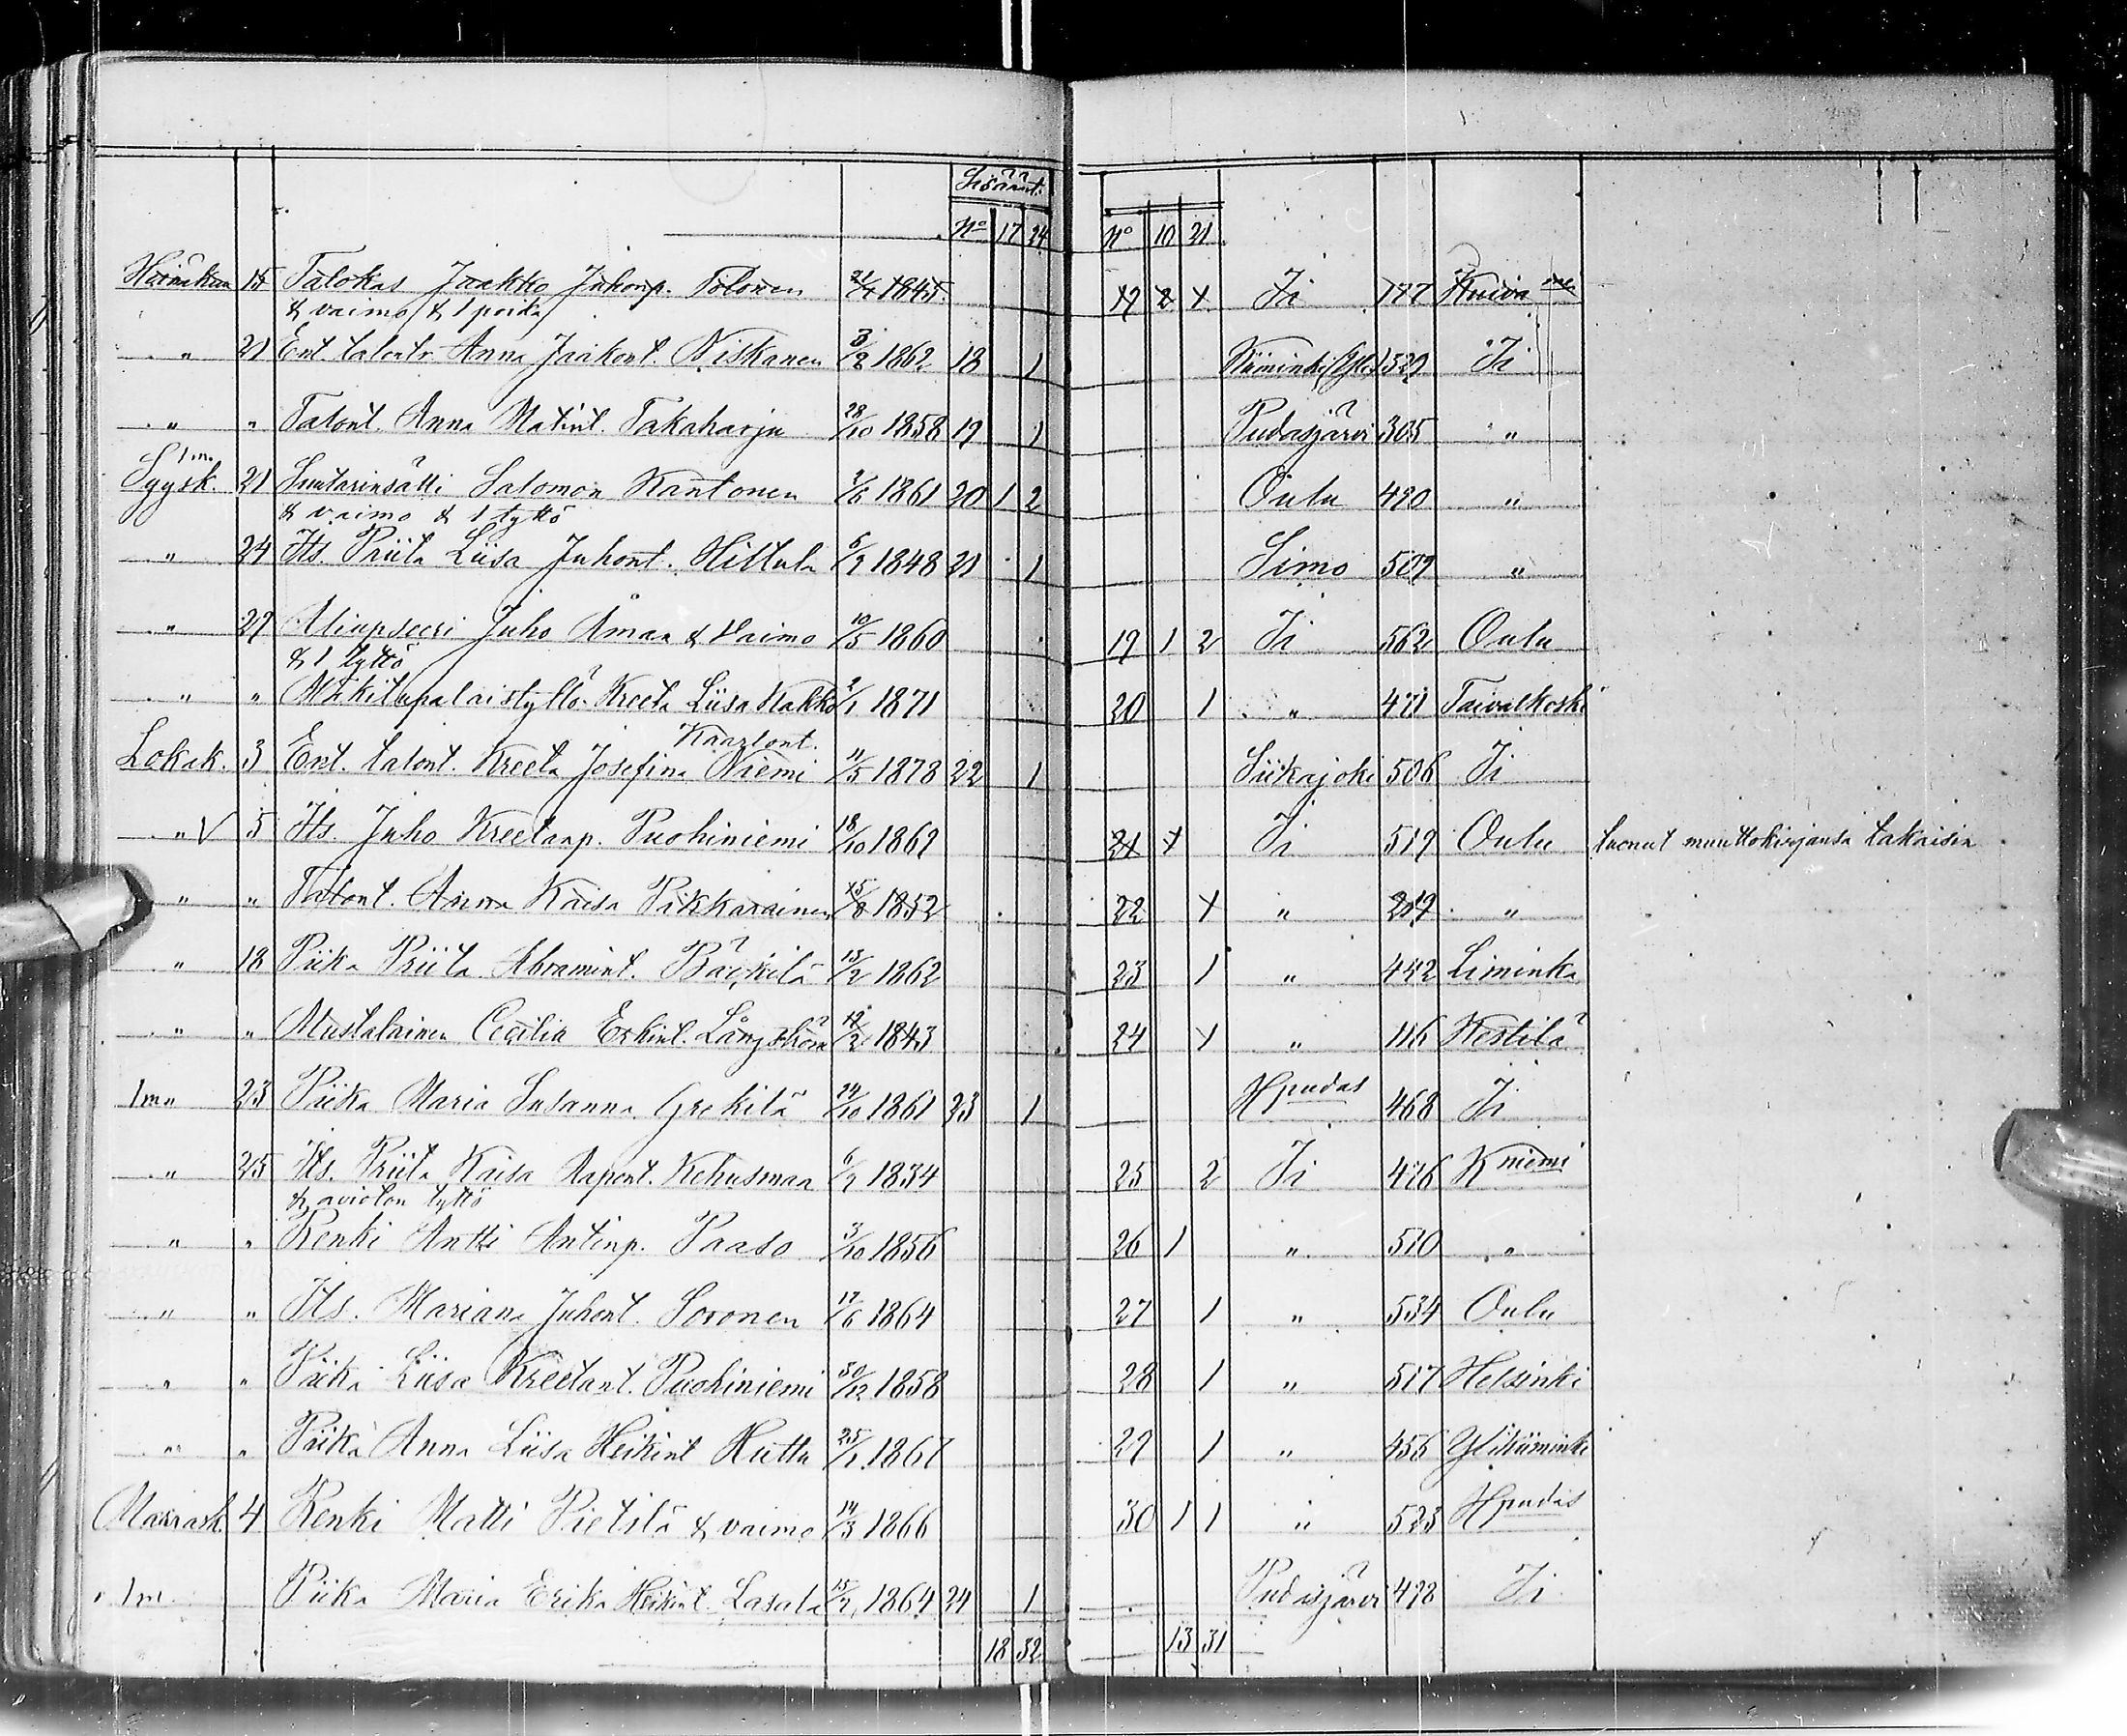 Sisäänt.
No 17 24 No 10 21
Heinäkuu 15 Talokas Jaakko Juhonp. Tolonen 1845 19 2 1 Ii 177 Kuiva
& vaimo & 1 poika
" 21 Ent. talontr. Anna Jaakont. Niskanen 3/8 1862 18 1 Kiiminki 529 Ii
" " Talont. Anna Matint. Takaharju 28/10 1858 19 1 Pudasjärvi 305 "
1 m.
Syysk. 21 Suutarinsälli Salomon Kantonen 1861 20 1 2 Oulu 490 "
& vaimo & 1 tyttö
" 24 Its. Priita Liisa Juhont. Hiltula 1848 21 1 Simo 509 "
" 29 Aliupseeri Juho Åman & Vaimo 10/5 1860 19 1 2 Ii 562 Oulu
& 1 tyttö
" " Mäkitupalaistyttö Kreeta Liisa Hakko 2/1 1871 20 1 " 471 Taivalkoski
Kaarlont.
Lokak. 3 Ent. talont. Kreeta Josefina Niemi 11/5 1878 22 1 Siikajoki 506 Ii
" V 5 Its. Juho Kreetanp. Puohiniemi 18/10 1869 21 1 Ii 519 Oulu tuonut muuttokirjansa takaisin
" " Talont. Anna Kaisa Pikkarainen 15/8 1852 22 1 " 219 "
" 18 Piika Priita Abramint. Bäckilä 13/2 1862 23 1 " 442 Liminka
" " Mustalainen Cecilia Erkint. Långström 1843 24 1 " 116 Kestilä
1 m " 23 Piika Maria Susanna Grekilä 24/10 1861 23 1 Hpudas 468 Ii
" 25 Its. Priita Kaisa Aapont. Kehusmaa 1834 25 2 Ii 476 Kniemi
& avioton tyttö
" " Renki Antti Antinp. Paaso 3/10 1856 26 1 " 510 "
" " Its. Mariana Juhont. Soronen 17/6 1864 27 1 " 534 Oulu
" " Piika Liisa Kreetant. Puohiniemi 30/12 1858 28 1 " 517 Helsinki
" " Piika Anna Liisa Heikint Hutta 1867 29 1 " 456 Ylikiiminki
Marrask. 4 Renki Matti Pietilä & vaimo 14/3 1866 30 1 1 " 523 Hpudas
" 1 m. Piika Maria Erika Heikint. Lasala 1864 24 1 Pudasjärvi 498 Ii
18 32 13 31